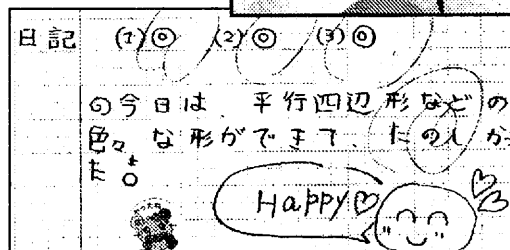 日記 (1)◎ (2)◎ (3)◎
の今日は、平行四辺形などの
色々な形ができて、たのしかっ
たよ。
Happy♡